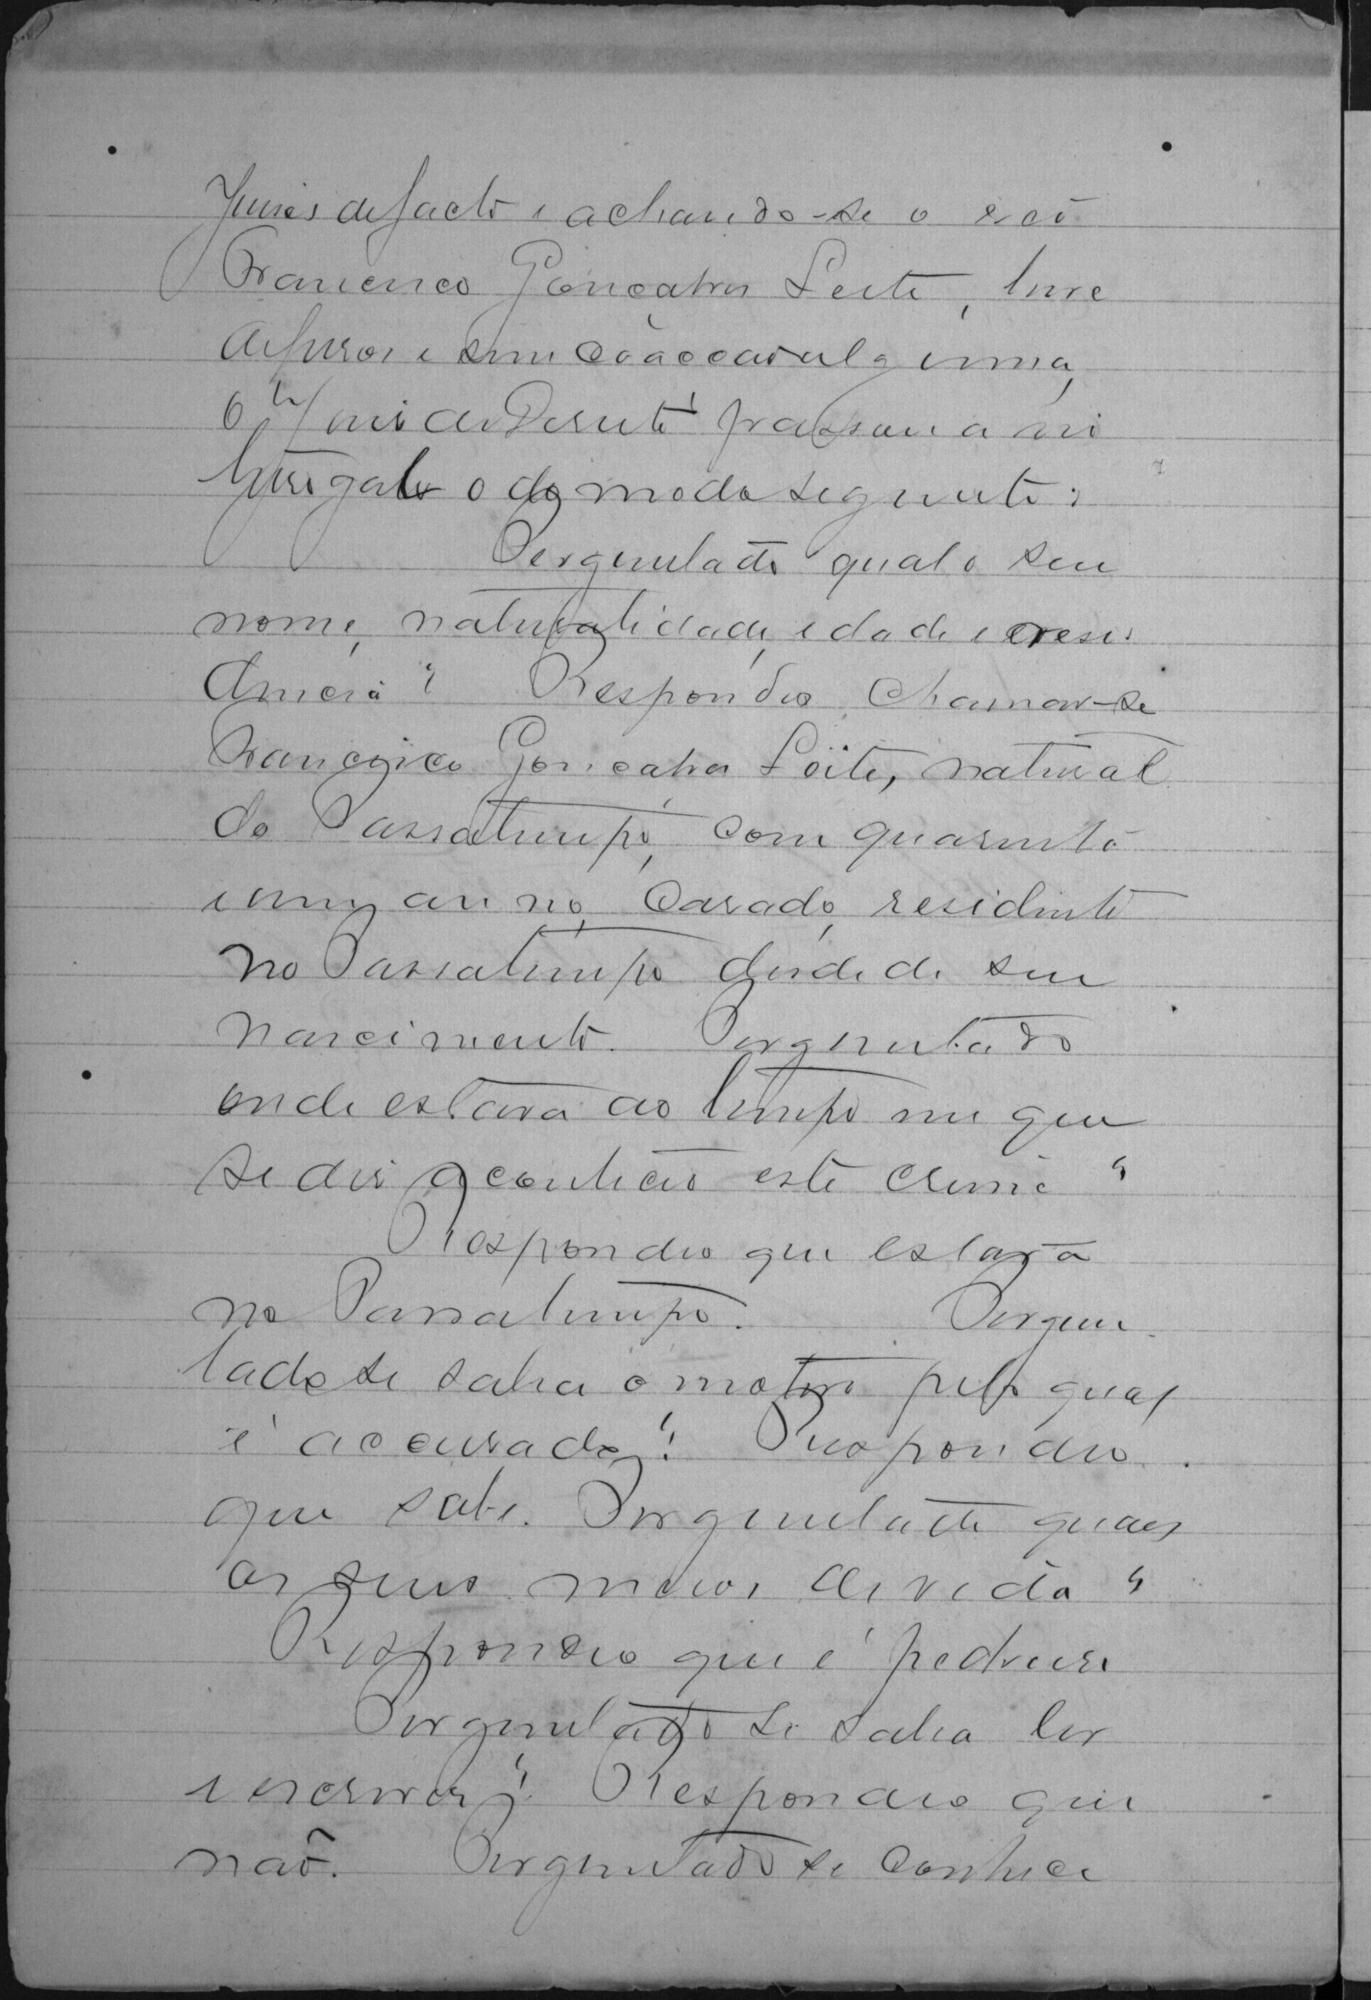 Juises de facto e achando-se o reo
Francisco Gonçalves Leite, livre
de ferros e sem coacção alguma,
o Juis de Direito passou a in
terrogal-o do modo seguinte:
Perguntado qual o seu
nome, naturalidade, edade e resi
dencia? Respondeo chamar-se
Francisco Gonçalves Leite, natural
do Passatempo, com quarenta
e um annos, casado, residente
no Passatempo desde de seu
nascimento. Perguntado
onde estava ao tempo em que
se diz aconteceo este crime?
Respondeo que estava
no Passatempo. Pergun
tado se sabia o motivo pelo qual
é accusado? Respondeo
que sabe. Perguntado quaes
os seus meios de vida?
Respondeo que é pedreiro
Perguntado se sabia ler
e escrever? Respondeo que
não. Perguntado se conhece